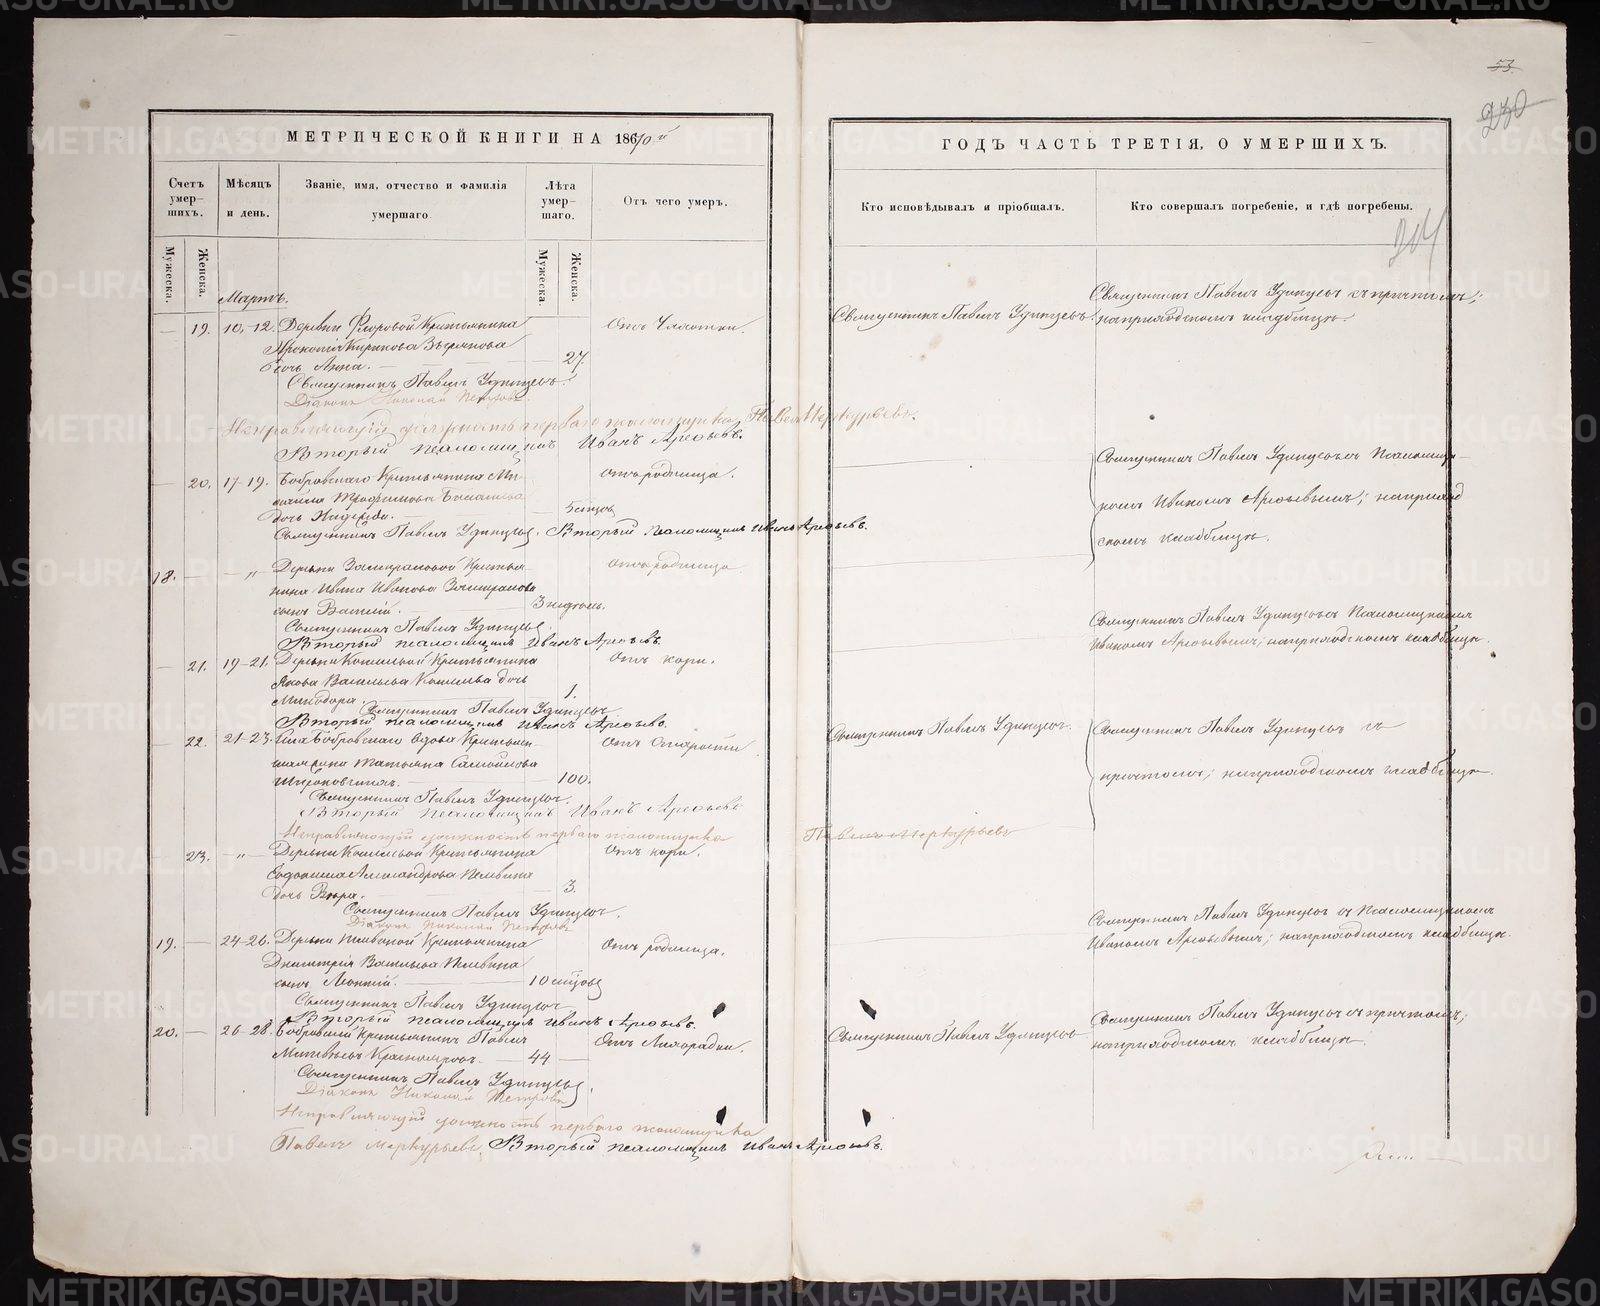 53.
230
МЕТРИЧЕСКОЙ КНИГИ НА 1870й
ГОДЪ ЧАСТЬ ТРЕТІЯ, О УМЕРШИХЪ.
Счетъ умер-
шихъ.
Мѣсяцъ
и день.
Званіе, имя, отчество и фамилія
умершаго.
Лѣта
умер-
шаго.
Отъ чего умеръ.
Кто исповѣдывалъ и пріобщалъ.
Кто совершалъ погребеніе, и гдѣ погребены.
204
Мужеска.
Женска.
Мужеска.
Женска.
Мартъ.
19. 10-12. Деревни Фроровой Крестьянина
Прокопія Кирикова
дочь Анна. 27.
Отъ Чахотки.
Священникъ Павелъ Удинцевъ.
Священникъ Павелъ Удинцевъ съ причтомъ;
на приходскомъ кладбищѣ.
Священникъ Павелъ Удинцевъ.
Діаконъ Николай Петровъ.
Исправляющій должность перваго псаломщика Павелъ Меркурьевъ.
Второй псаломщикъ Иванъ Арефьевъ.
20. 17-19. Бобровскаго Крестьянина Ми-
хаила Трофимова
дочь Надежда. 5 мѣсяц
Отъ родимца.
Священникъ Павелъ Удинцевъ. Второй псаломщикъ Иванъ Арефьевъ.
Священникъ Павелъ Удинцевъ съ Псаломщи-
комъ Иваномъ Арефьевымъ; на приход
скомъ кладбищѣ.
18. — „ Деревни Крестья-
нина Ивана Иванова
сынъ Василій. 3 недѣль.
Отъ родимца.
Священникъ Павелъ Удинцевъ.
Второй псаломщикъ Иванъ Арефьевъ.
Священникъ Павелъ Удинцевъ съ Псаломщикомъ
Иваномъ Арефьевымъ; на приходскомъ кладбищѣ.
21. 19-21. Деревни Крестьянина
Якова Васильева дочь
Минодора. 1.
Отъ кори.
Священникъ Павелъ Удинцевъ.
Второй псаломщикъ Иванъ Арефьевъ.
22. 21-23. Села Бобровскаго вдова Крестьян-
Татьяна Самойлова
100.
Отъ Старости
Священникъ Павелъ Удинцевъ.
Священникъ Павелъ Удинцевъ съ
причтомъ; на приходскомъ кладбищѣ.
Священникъ Павелъ Удинцевъ.
Второй псаломщикъ Иванъ Арефьевъ
Исправляющій должность перваго псаломщика Павелъ Меркурьевъ
23. „ Деревни Крестьянина
Александрова Пелевина
дочь Вѣра. 3.
Отъ кори.
Священникъ Павелъ Удинцевъ.
Діаконъ Николай Петровъ
19. — 24-26. Деревни Крестьянина
Димитрія Васильева Пелевина
сынъ Леонтій. 10 мѣсяцовъ
Отъ родимца.
Священникъ Павелъ Удинцевъ съ Псаломщикомъ
Иваномъ Арефьевымъ; на приходскомъ кладбищѣ.
Священникъ Павелъ Удинцевъ
Второй псаломщикъ Иванъ Арефьевъ.
20. — 26-28. Бобровскій Крестьянинъ Павелъ
Матвѣевъ — 44 —
Отъ Лихорадки.
Священникъ Павелъ Удинцевъ
Священникъ Павелъ Удинцевъ съ причтомъ;
на приходскомъ кладбищѣ.
Священникъ Павелъ Удинцевъ.
Діаконъ Николай Петровъ
Исправляющій должность перваго псаломщика
Павелъ Меркурьевъ. Второй псаломщикъ Иванъ Арефьевъ.
METRIKI.GASO-URAL.RU